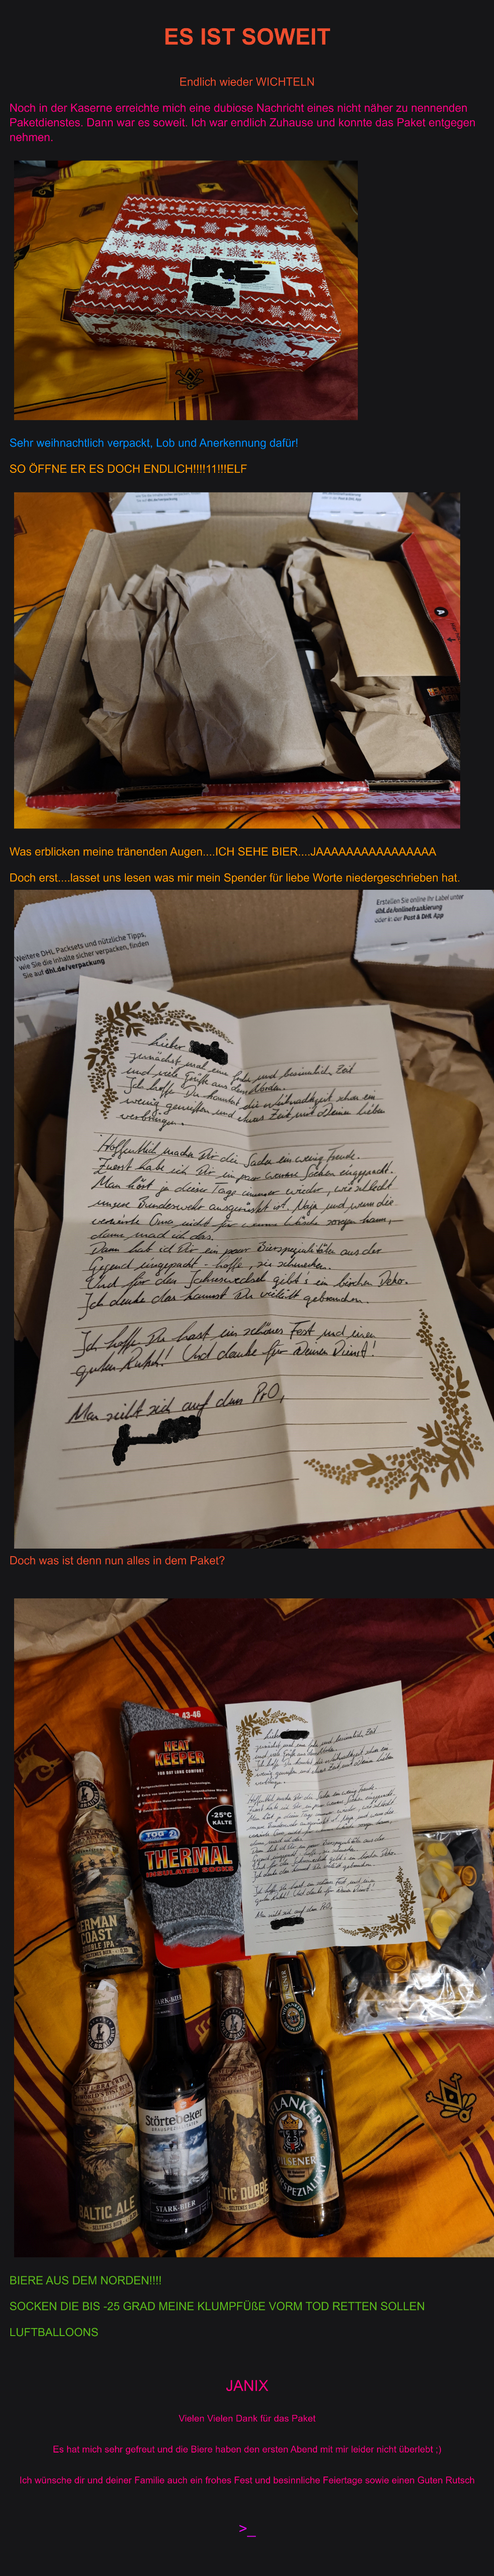 ES IST SOWEIT
Endlich wieder WICHTELN
Noch in der Kaserne erreichte mich eine dubiose Nachricht eines nicht näher zu nennenden
Paketdienstes. Dann war es soweit. Ich war endlich Zuhause und konnte das Paket entgegen
nehmen.
Sehr weihnachtlich verpackt, Lob und Anerkennung dafür!
SO ÖFFNE ER ES DOCH ENDLICH!!!!11!!!ELF
Was erblicken meine tränenden Augen....ICH SEHE BIER....JAAAAAAAAAAAAAAAA
Doch erst....lasset uns lesen was mir mein Spender für liebe Worte niedergeschrieben hat.
Weitere DHL Packsets und nützliche Tipps,
wie Sie die Inhalte sicher verpacken, finden
Sie auf dhl.de/verpackung
Erstellen Sie online Ihr Label unter
dhl.de/onlinefrankierung
oder in der Post & DHL App
Lieber
zunächst mal eine frohe und besinnliche Zeit
und viele Grüße aus dem Norden.
Ich hoffe, Du konntest die Weihnachtszeit schon ein
wenig genießen und etwas Zeit mit Deinen Lieben
verbringen.
Hoffentlich machen Dir die Sachen ein wenig Freude.
Zuerst habe ich Dir ein paar warme Socken eingepackt.
Man hört ja dieser Tage immer wieder, wie schlecht
unsere Bundeswehr ausgerüstet ist. Naja, und wenn die
Oma nicht für warme sorgen kann,
dann mach ich das.
Dann hab ich Dir ein paar Bierspezialitäten aus der
Gegend eingepackt - hoffe, sie schmecken.
Und für den gibt's ein bisschen Deko.
Ich denke das kannst Du vielleicht gebrauchen.
Ich hoffe Du hast ein schönes Fest und einen
guten Rutsch! Und danke für Deinen Dienst!
Man sieht sich auf dem Pr0,
Doch was ist denn nun alles in dem Paket?
43-46
HEAT
KEEPER
FOR DAY LONG COMFORT
-25°C
KÄLTE
TOG
THERMAL
INSULATED SOCKS
GERMAN
COAST
DOUBLE IPA
BALTIC ALE
STARK-BIER
Störtebeker
BRAUSPEZIALITÄTEN
STARK-BIER
BALTIC DUBBEL
LANKER
PILSENER
BIERSPEZIALITÄT
BIERE AUS DEM NORDEN!!!!
SOCKEN DIE BIS -25 GRAD MEINE KLUMPFÜßE VORM TOD RETTEN SOLLEN
LUFTBALLOONS
JANIX
Vielen Vielen Dank für das Paket
Es hat mich sehr gefreut und die Biere haben den ersten Abend mit mir leider nicht überlebt ;)
Ich wünsche dir und deiner Familie auch ein frohes Fest und besinnliche Feiertage sowie einen Guten Rutsch
>_